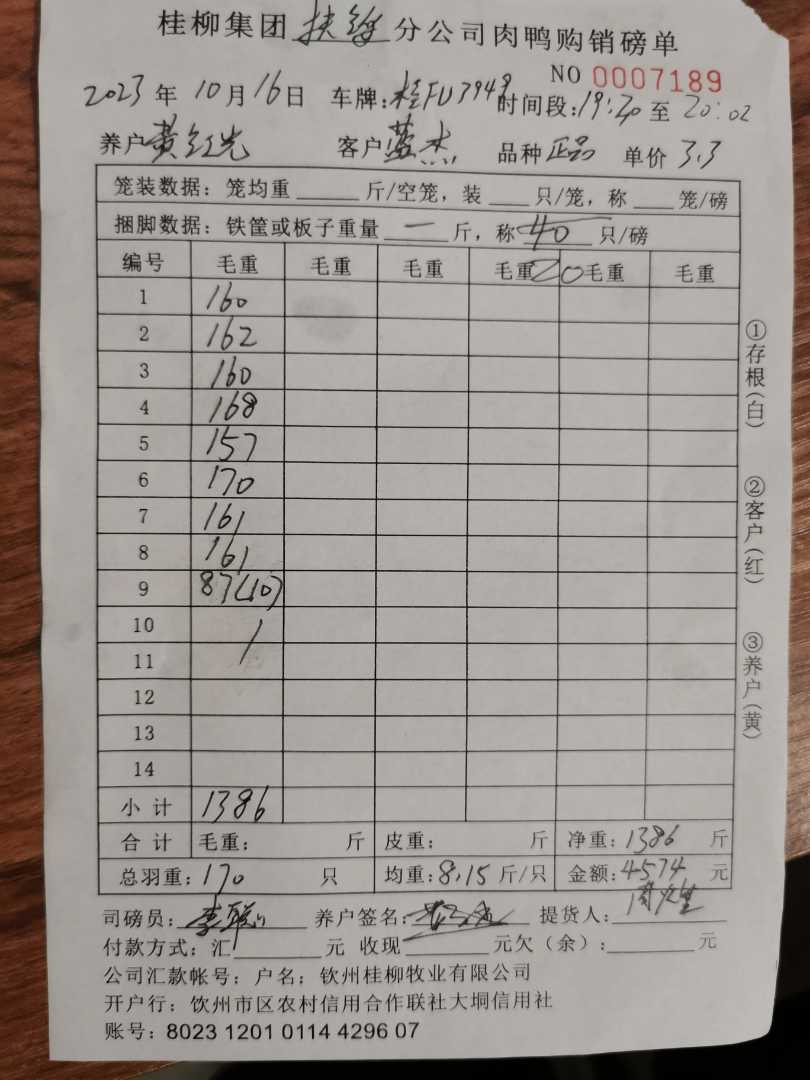 桂柳集团 扶绥 分公司肉鸭购销磅单
NO 0007189
2023年10月16日 车牌:桂FU3949 时间段:19:20至20:02
养户黄红光 客户蓝杰 品种正品 单价3.3
笼装数据:笼均重____斤/空笼,装___只/笼,称___笼/磅
捆脚数据:铁筐或板子重量 一 斤,称 40 只/磅
编号 毛重 毛重 毛重 毛重 20 毛重 毛重
1 160
2 162
3 160
4 168
5 157
6 170
7 161
8 161
9 87(10)
10
11
12
13
14
小计 1386
合计 毛重: 斤 皮重: 斤 净重:1386 斤
总羽重:170 只 均重:8.15斤/只 金额:4574元
司磅员: 养户签名: 提货人:
付款方式:汇____元 收现____元欠(余):____元
公司汇款帐号:户名:钦州桂柳牧业有限公司
开户行:饮州市区农村信用合作联社大垌信用社
账号:8023 1201 0114 4296 07
①存根(白)
②客户(红)
③养户(黄)